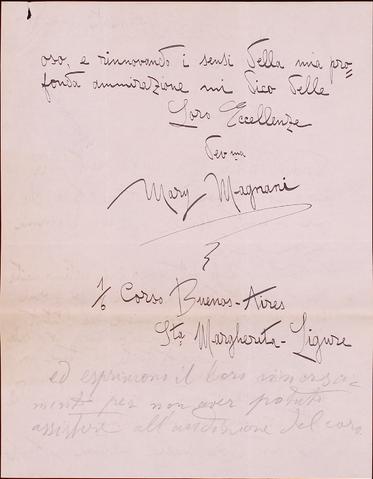 oso, e rinnovando i sensi della mia pro=
fonda ammirazione mi dico delle
Loro Eccellenze
Dev ma
Mary Magnani
1/6 Corso Buenos-Aires
Sta Margherita-Ligure
ed esprimono il loro
per non aver potuto
assistere all'audizione del coro